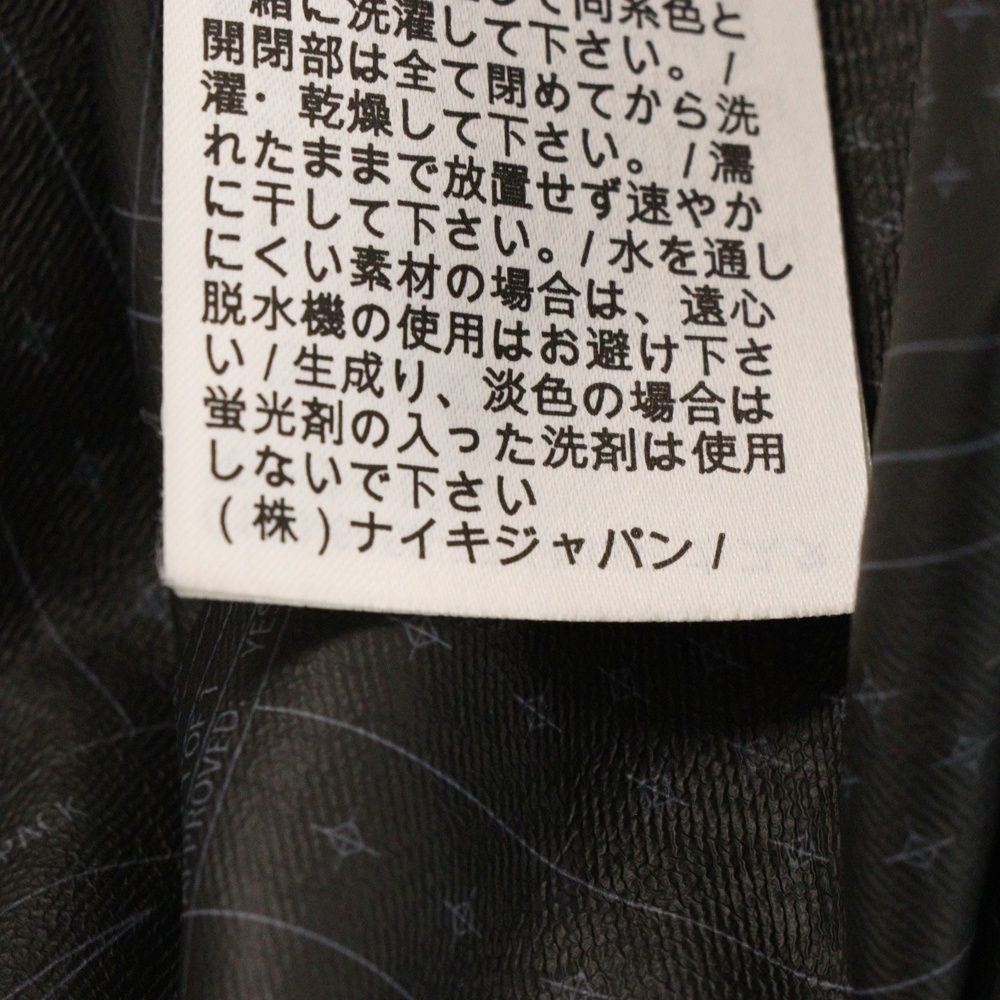 緒に洗濯して下さい。/
開閉部は全て閉めてから洗
濯・乾燥して下さい。/濡
れたままで放置せず速やか
に干して下さい。/水を通し
にくい素材の場合は、遠心
脱水機の使用はお避け下さ
い/生成り、淡色の場合は
蛍光剤の入った洗剤は使用
しないで下さい
(株)ナイキジャパン/
OF
ROVED.
PACK